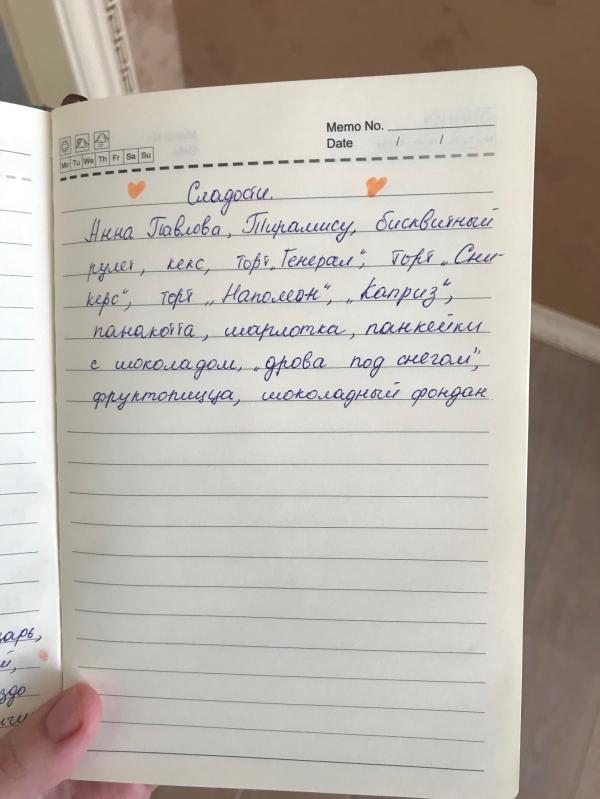 Memo No.
Date / /
Mo Tu We Th Fr Sa Su
Сладости.
Анна Павлова, Тирамису, бисквитный
рулет, кекс, торт „Генерал“, торт „Сни-
керс“, торт „Наполеон“, „Каприз“,
панакотта, шарлотка, панкейки
с шоколадом, „дрова под снегом“,
фруктопицца, шоколадный фондан
царь,